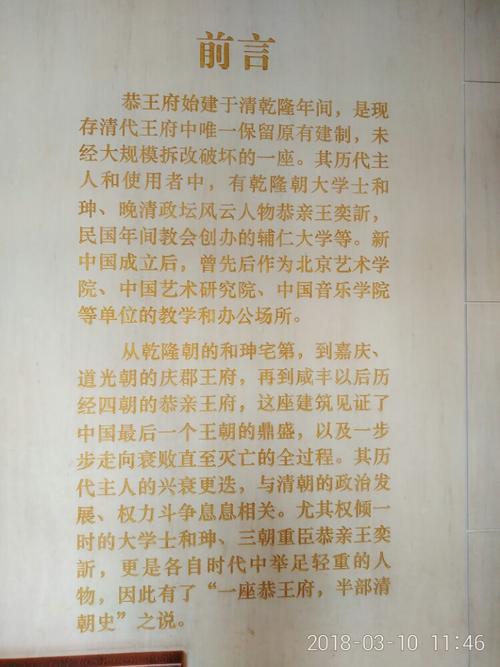 前言
恭王府始建于清乾隆年间，是现
存清代王府中唯一保留原有建制，未
经大规模拆改破坏的一座。其历代主
人和使用者中，有乾隆朝大学士和
珅、晚清政坛风云人物恭亲王奕訢，
民国年间教会创办的辅仁大学等。新
中国成立后，曾先后作为北京艺术学
院、中国艺术研究院、中国音乐学院
等单位的教学和办公场所。
从乾隆朝的和珅宅第，到嘉庆、
道光朝的庆郡王府，再到咸丰以后历
经四朝的恭亲王府，这座建筑见证了
中国最后一个王朝的鼎盛，以及一步
步走向衰败直至灭亡的全过程。其历
代主人的兴衰更迭，与清朝的政治发
展、权力斗争息息相关。尤其权倾一
时的大学士和珅、三朝重臣恭亲王奕
訢，更是各自时代中举足轻重的人
物，因此有了“一座恭王府，半部清
朝史”之说。
2018-03-10 11:46